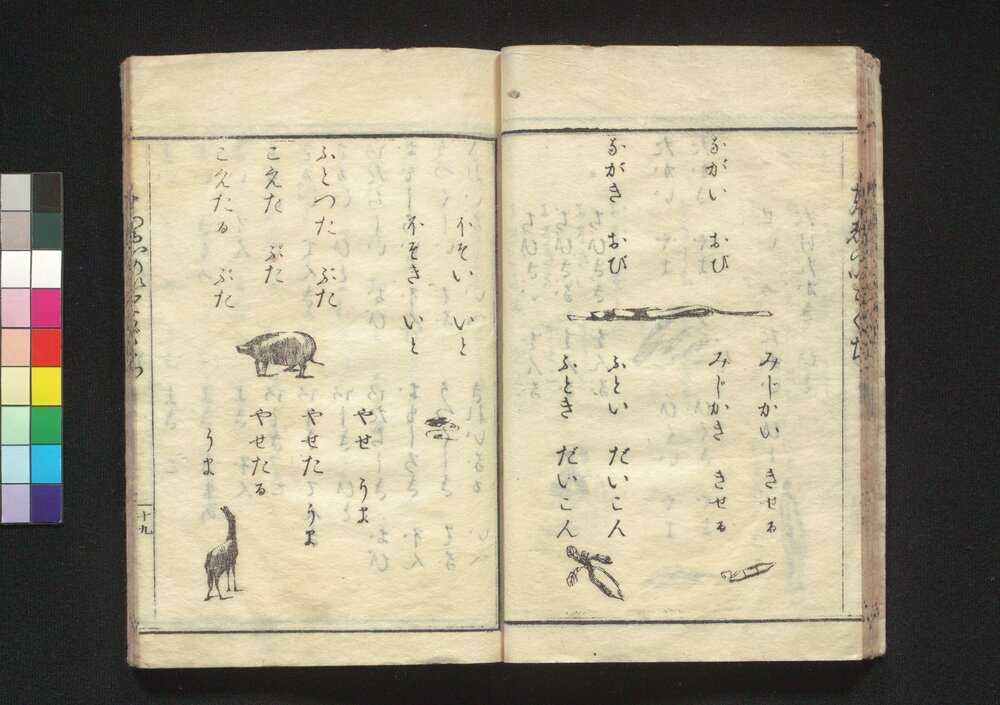 ながい おび
ながき おび
みじかい きせる
みじかき きせる
ふとい だいこん
ふとき だいこん
ほそい いと
ほそき いと
ふとつた ぶた
こえた ぶた
こえたる ぶた
やせ うま
やせた うま
やせたる うま
十九